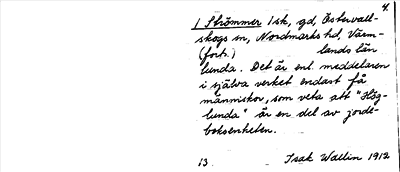 4.
1 Strömmer 1 sk, gd, Östervall-
skogs sn, Nordmarks hd, Värm-
(forts.) lands län
lunda. Det är enl. meddelaren
i själva verket endast få
människor, som veta att "Hög-
lunda" är en del av jorde-
boksenheten.
13. Isak Wallin 1912